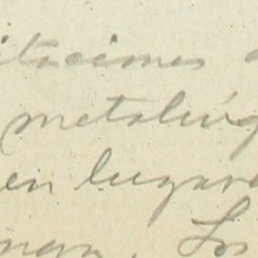 itaciones
metalúrg
en lugar
Los